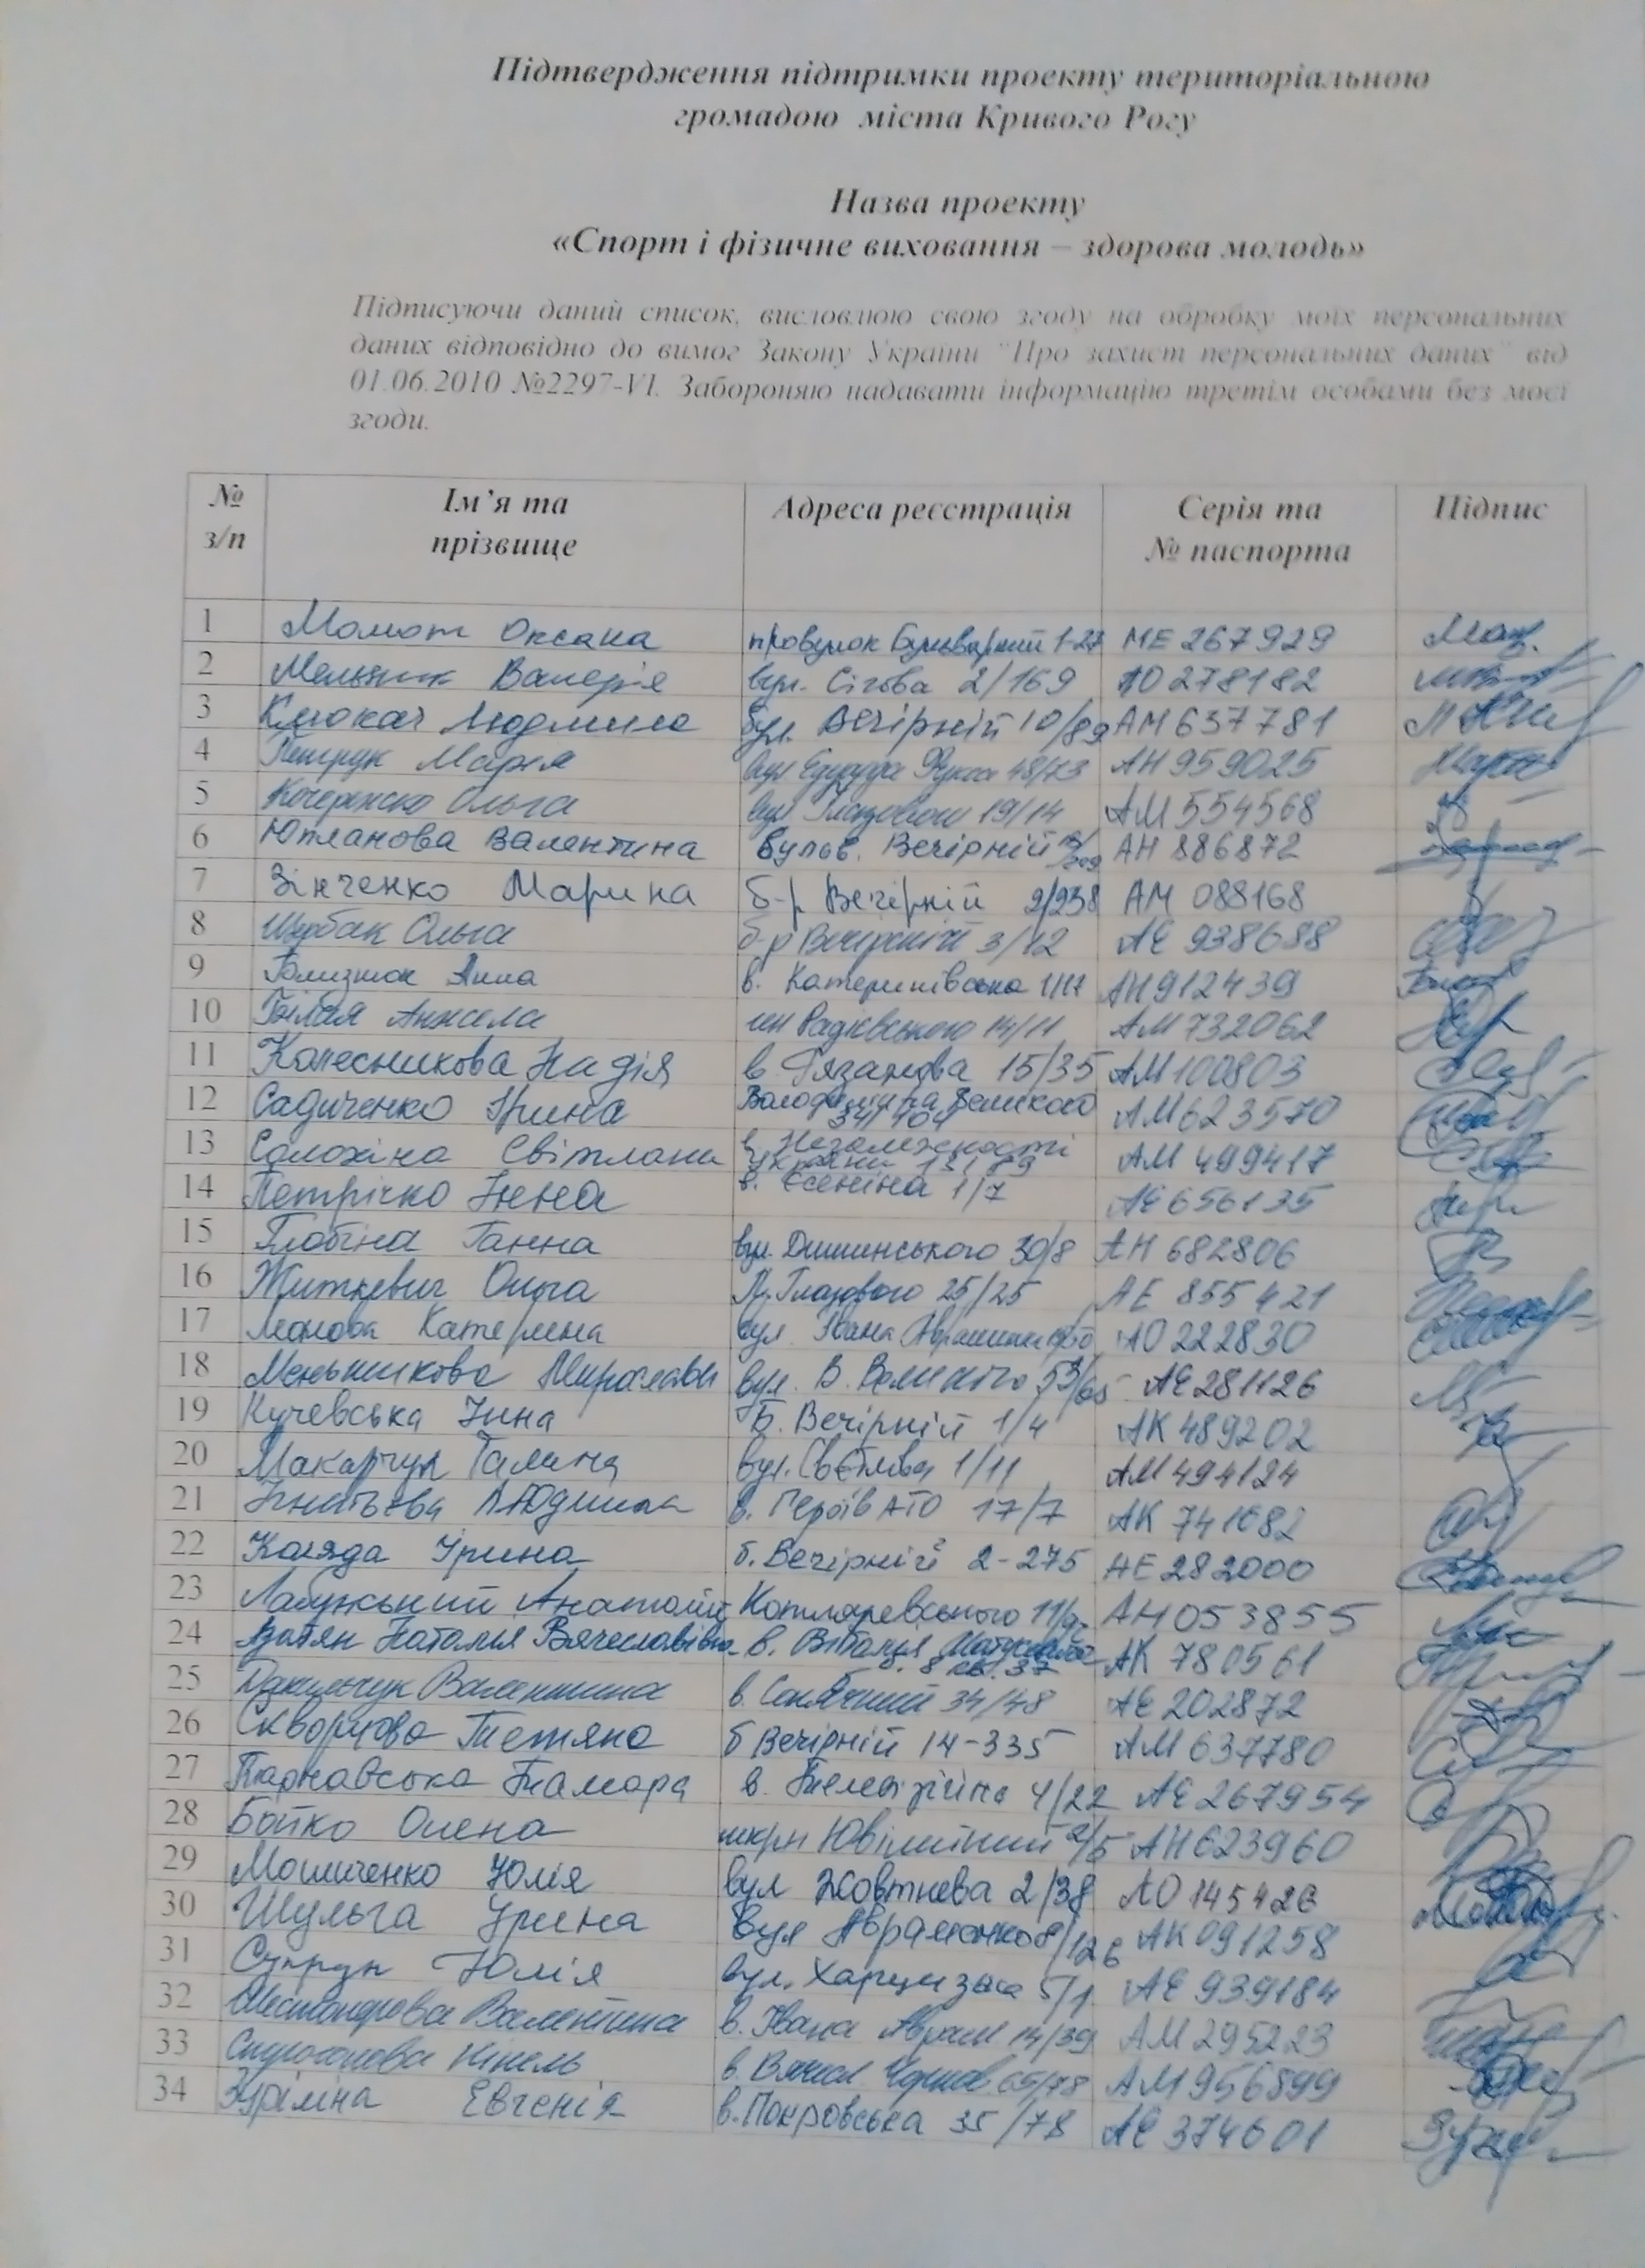 Підтвердження підтримки проекту територіальною
громадою міста Кривого Рогу
Назва проекту
«Спорт і фізичне виховання – здорова молодь»
Підписуючи даний список, висловлюю свою згоду на обробку моїх персональних
даних відповідно до вимог Закону України "Про захист персональних даних" від
01.06.2010 №2297-VI. Забороняю надавати інформацію третім особами без моєї
згоди.
№ з/п Ім’я та прізвище Адреса реєстрація Серія та № паспорта Підпис
1 Момот Оксана 1-27 МЕ 267929
2 Мельник Валерія вул. Сігова 2/169 АО 278182
3 Клюкач Людмила бул. Вечірній 10/89 АМ 637781
4 Петрук Марія вул Едуарда Фукса 48/73 АН 959025
5 Ольга вул 19/14 АМ 554568
6 Юпланова Валентина бульв. Вечірній АН 886872
7 Зінченко Марина б-р Вечірній 2/238 АМ 088168
8 Щербак Ольга б-р Вечірній 3/12 АЕ 938688
9 Близнюк Анна в. Катеринівська АН 912439
10 Білая Анжела мн Радієвського 14/11 АМ 732062
11 Колесникова Надія в. Рязанова 15/35 АМ 100803
12 Садиченко Ірина Володимира Великого 34/104 АМ 623570
13 Солохіна Світлана в. Незалежності України АМ 499417
14 Петрічко Інна в. Єсеніна 1/7 АЕ 656135
15 Глобіна Ганна вул. Дишинського 30/8 АН 682806
16 Житкевич Ольга Глазового 25/25 АЕ 855421
17 Катерина вул. Івана АО 222830
18 Меньшикова Мирослава вул. В. Великого 53/65 АЕ 281126
19 Кучевська Інна Б. Вечірній 1/4 АК 489202
20 Макарчук Галина вул. Свєтлова 1/11 АМ 494124
21 Ігнатьєва Людмила в. Героїв АТО 17/7 АК 741682
22 Коляда Ірина б. Вечірній 2-275 АЕ 282000
23 Лабунський Анатолій Котляревського АН 053855
24 Наталія Вячеславівна в. Віталія Матусевича б. 8 кв. 37 АК 780561
25 Валентина в. Сонячний 34/48 АЕ 202872
26 Скворцова Тетяна б Вечірній 14-335 АМ 637780
27 Тарнавська Тамара в. Телевізійна 4/22 АЕ 267954
28 Бойко Олена мкрн Ювілейний 2/5 АН 623960
29 Мошиченко Юлія вул Жовтнева 2/38 АО 145426
30 Шульга Ірина вул Авраменко 8/126 АК 091258
31 Супрун Юлія вул. 5/1 АЕ 939184
32 Валентина в. Івана 14/39 АМ 295223
33 Нінель в. 65/78 АМ 956899
34 Зуріліна Евгенія в. Покровська 35/78 АЕ 374601